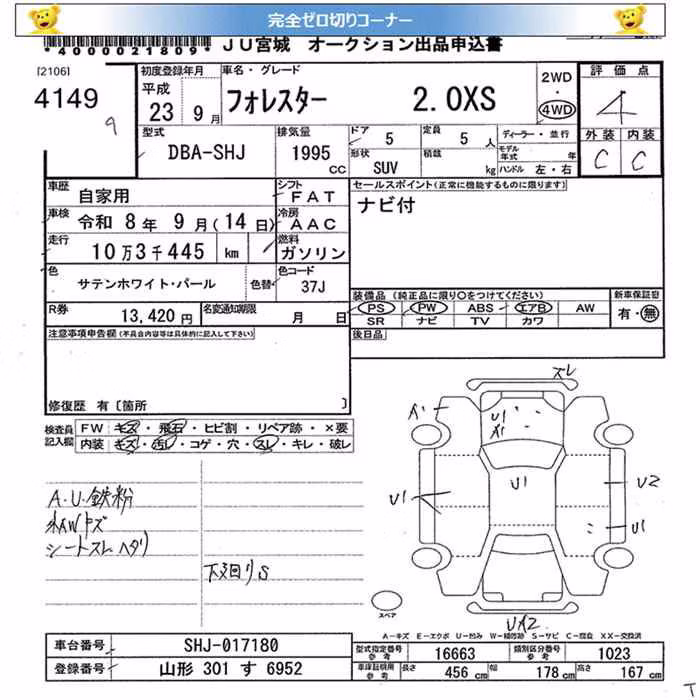 完全ゼロ切りコーナー
*4000021809* JU宮城 オークション出品申込書
[2106]
4149
9
初度登録年月 平成 23 9月
車名・グレード フォレスター 2.0XS
2WD・4WD
評価点 4
外装 内装
C C
型式 DBA-SHJ
排気量 1995 CC
ドア 5
定員 5 人
形状 SUV
積載 kg
ディーラー・並行
モデル年式 年
ハンドル 左・右
車歴 自家用
シフト FAT
セールスポイント(正常に機能するものに限ります)
ナビ付
車検 令和 8年 9月(14日)
冷房 AAC
走行 10万3千445 km
燃料 ガソリン
色 サテンホワイト・パール
色替
色コード 37J
装備品 (純正品に限り○をつけてください)
PS PW ABS エアB AW
SR ナビ TV カワ
新車保証書 有・無
R券 13,420円
名変通知期限 月 日
後日品
注意事項申告欄(不具合内容等は具体的に記入して下さい)
修復歴 有 [箇所 ]
検査員記入欄
FW キズ・飛石・ヒビ割・リペア跡・×要
内装 キズ・汚レ・コゲ・穴・スレ・キレ・破レ
A.U.鉄粉
シートスレ ヘタリ
下廻りS
スレ
U1
U1
U1
U2
U1
スペア
A-キズ E-エクボ U-凹み W-補修跡 S-サビ C-腐食 XX-交換済
車台番号 SHJ-017180
登録番号 山形 301 す 6952
型式指定番号 参考 16663
類別区分番号 参考 1023
車庫証明用 参考 長さ 456 cm 幅 178 cm 高さ 167 cm